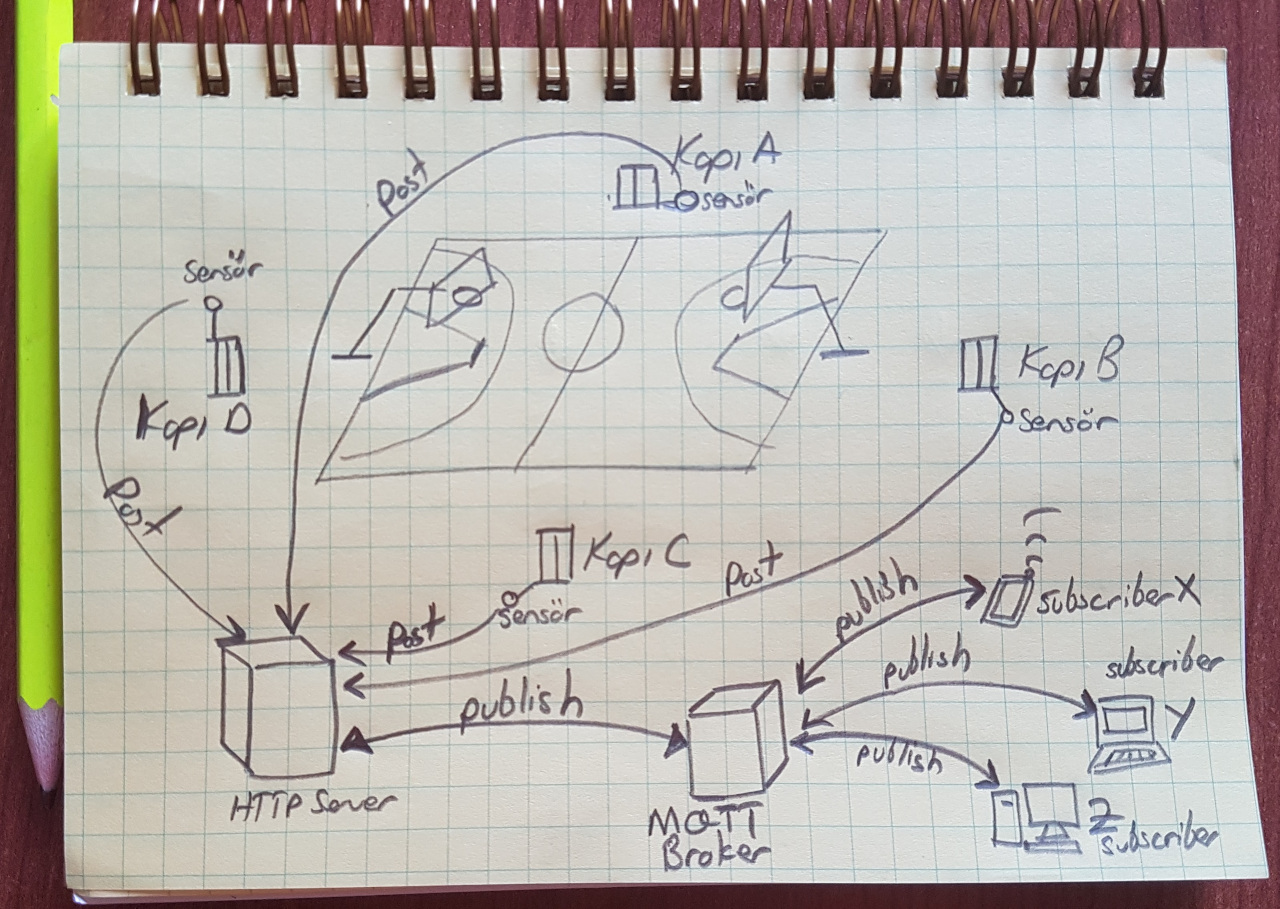 Kapı A
Post
sensör
sensör
Kapı B
Kapı D
sensör
Post
Kapı C
Post
sensör
publish
subscriber X
Post
publish
subscriber
Y
publish
publish
HTTP Server
MQTT
Broker
Z
subscriber